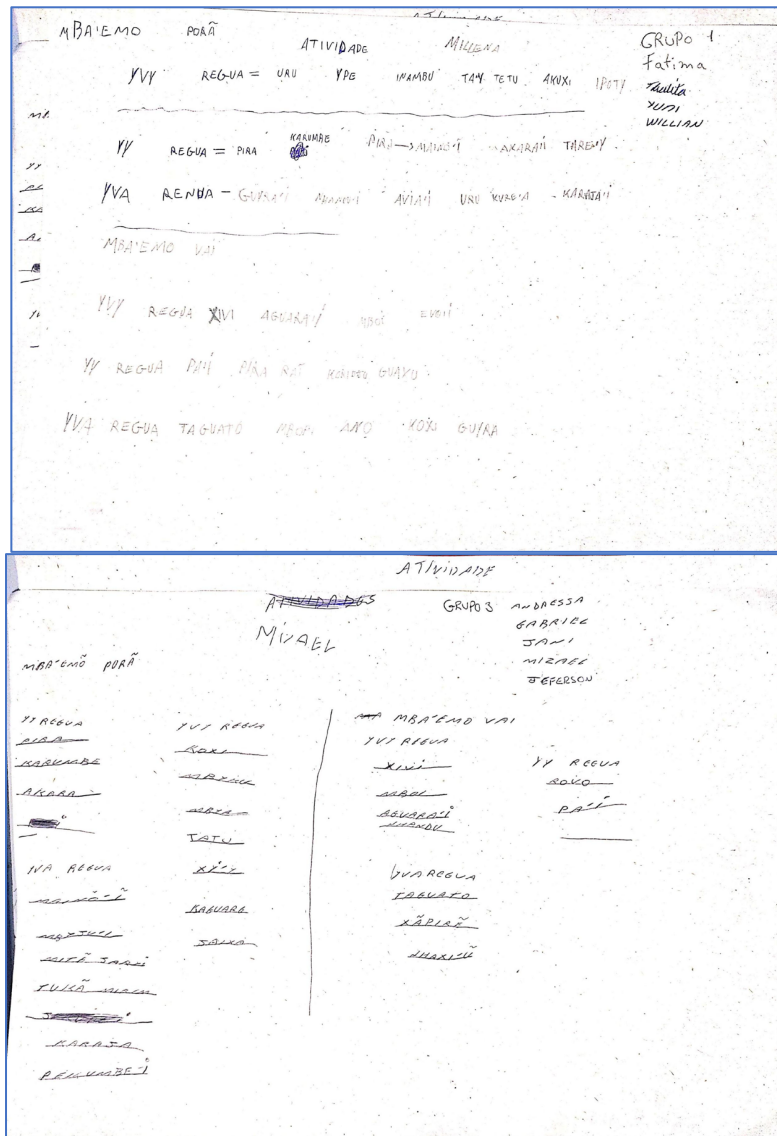 ATIVIDADE
MBA'EMO PORÃ
ATIVIDADE MILLENA
GRUPO 1
Fatima
YUDI
WILLIAN
YVY REGUA = URU YPE INAMBU TAY TETU AKUXI IPOTY
YY REGUA = PIRA KARUMBE PIRA → MAINO'I AKARA'I TAREY
YVA RENDA - GUYRA'I AVIA'I URU KURE'A KARAJA'I
MBA'EMO VAI
YVY REGUA XIVI AGUARA'I MBOI
YY REGUA PA'I PIRA RAI GUAXU
YVA REGUA TAGUATO MBOPI ANO GUYRA
ATIVIDADE
ATIVIDADES
GRUPO 3 ANDRESSA
GABRIEL
JANI
MIZAEL
JEFERSON
MIZAEL
MBA'EMÕ PORÃ
YY REGUA
PIRA
KARUMBE
AKARA
IVA REGUA
MAINÕ'I
MITÃ JARÍI
TUKÃ MIRIM
KARAJA
PEKUMBE'I
YVY REGUA
KOXI
TATU
XI'Y
KAGUARE
JAIXA
MBA'EMO VAI
YVY REGUA
XIVI
MBOI
AGUARA'I
NHANDU
YVA REGUA
TAGUATO
XÃPIRẼ
YY REGUA
ROVO
PA'I